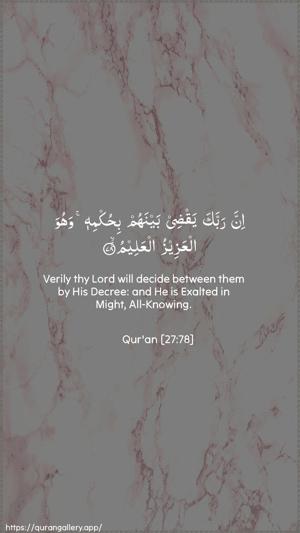 اِنَّ رَبَّكَ يَقْضِىْ بَيْنَهُمْ بِحُكْمِهٖ ۚ وَهُوَ
الْعَزِيْزُ الْعَلِيْمُ ۙ‏﴿۷۸﴾
Verily thy Lord will decide between them
by His Decree: and He is Exalted in
Might, All-Knowing.
Qur'an [27:78]
https://qurangallery.app/